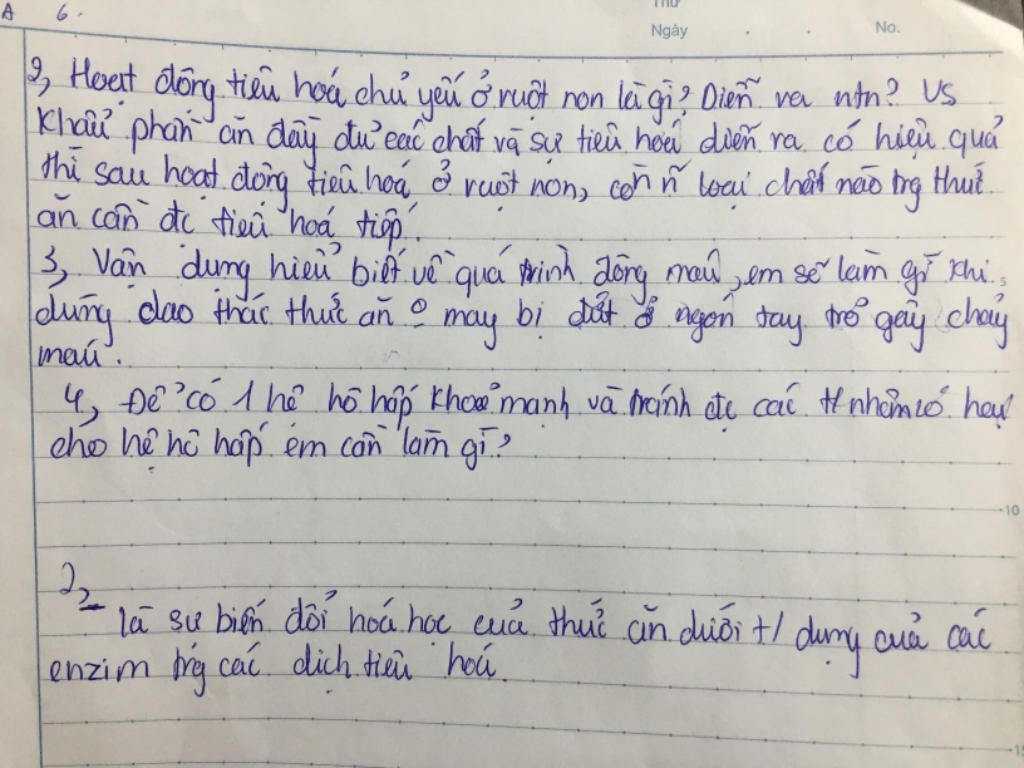 A 6.
Thứ
Ngày No.
2, Hoạt động tiêu hoá chủ yếu ở ruột non là gì? Diễn ra ntn? Vs
khẩu phần ăn đầy đủ các chất và sự tiêu hoá diễn ra có hiệu quả
thì sau hoạt động tiêu hoá ở ruột non, còn ~ loại chất nào trg thức
ăn cần đc tiêu hoá tiếp.
3, Vận dụng hiểu biết về quá trình đông máu, em sẽ làm gì khi
dùng dao thái thức ăn o may bị đứt ở ngón tay trỏ gây chảy
máu.
4, Để có 1 hệ hô hấp khoẻ mạnh và tránh đc các nhân tố hại
cho hệ hô hấp em cần làm gì?
10
2,
là sự biến đổi hoá học của thức ăn dưới t/ dụng của các
enzim trg các dịch tiêu hoá
15